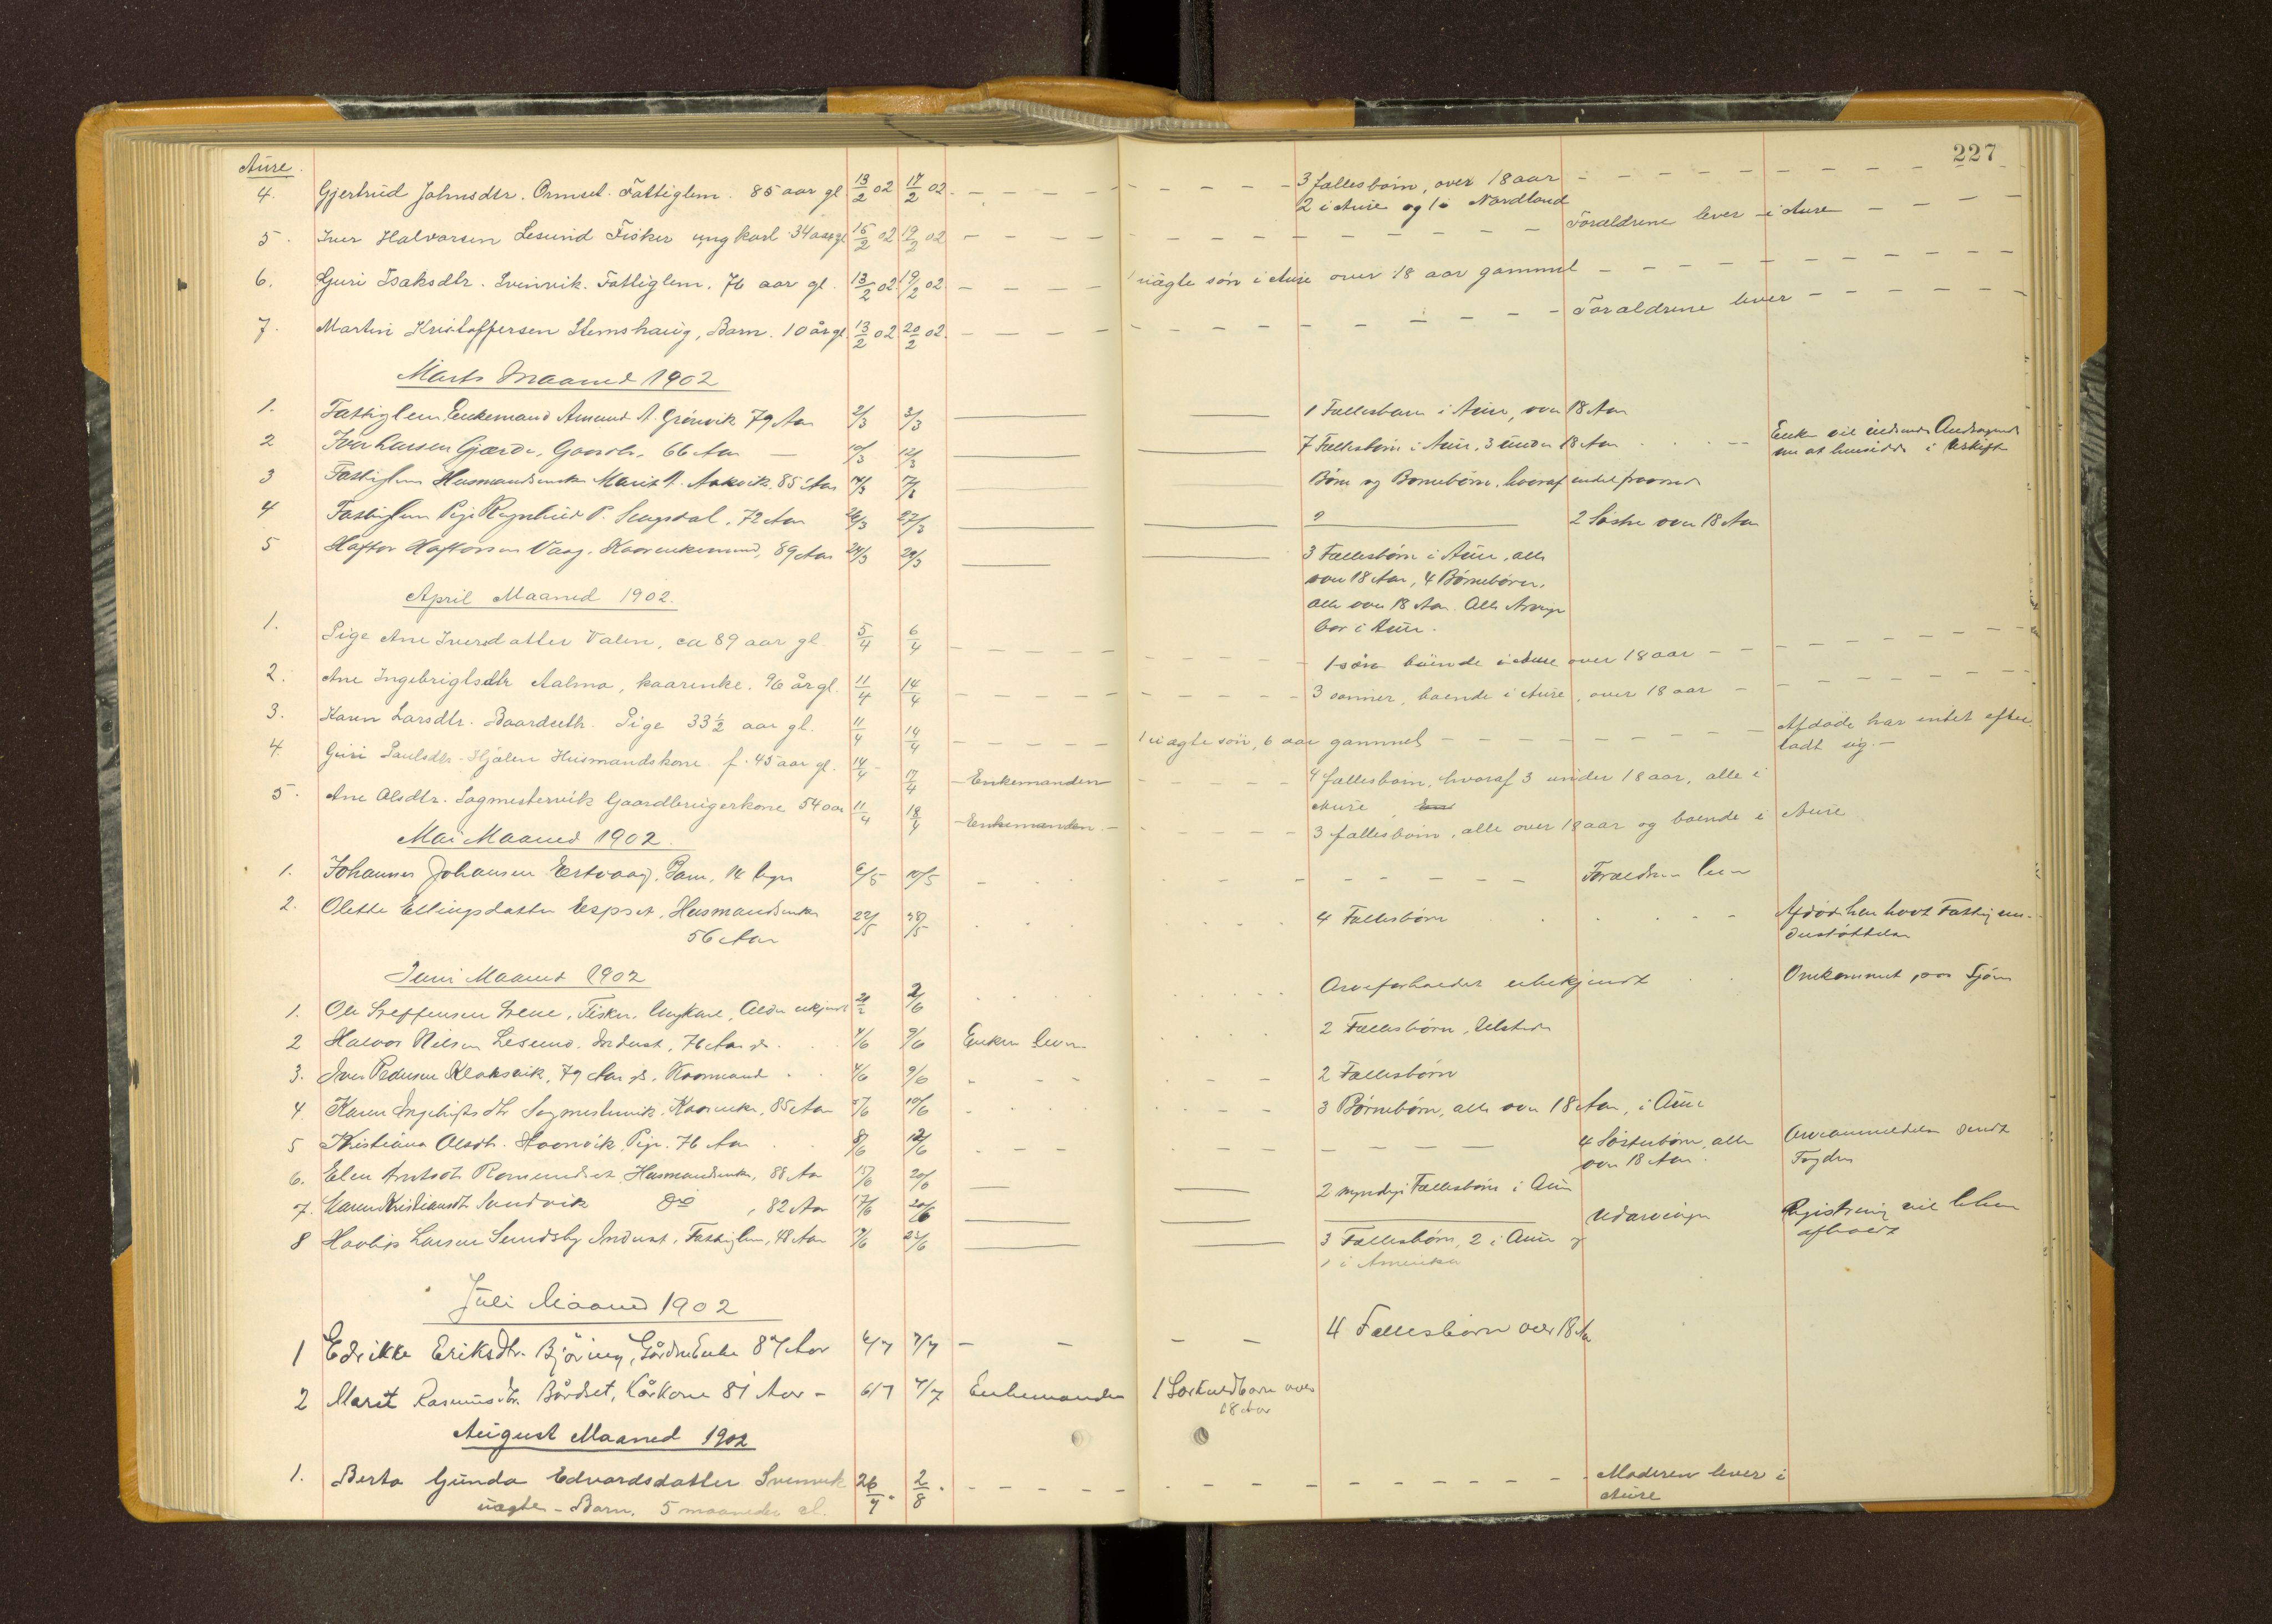 227
Aure.
4. Gjertrud Johnsdtr. Ormset. Fattiglem. 85 aar gl 13/2 02 17/2 02. 3 fællesbörn, over 18 aar
2 i Aure og 1 i Nordland
5. Iver Halvorsen Lesund Fisker ungkarl 34 aar gl 15/2 02 19/2 02 Forældrene lever i Aure
6. Guri Isaksdtr. Svinvik. Fattiglem. 76 aar gl. 13/2 02 19/2 02 1 uægte sön i Aure over 18 aar gammel
7. Martin Kristoffersen Stemshaug, Barn. 10 år gl. 13/2 02 20/2 02. Forældrene lever
Marts Maaned 1902
1. Fattiglem Enkemand Amund A. Grönvik 79 Aar 2/3 3/3 1 Fællesbarn i Aure, over 18 Aar
2 Iver Larsen Gjærde, Gaardb. 66 Aar 10/3 12/3 7 Fællesbörn i Aure, 3 under 18 Aar Enken vil indsende Andragende
om at hensidde i Uskifte
3 Fattiglem Husmandsenke Marit A. Aakvik, 85 Aar 4/3 7/3 Börn og Börnebörn, hvoraf endel fraværende
4 Fattiglem Pige Ragnhild P. 72 Aar 26/3 27/3 ? 2 Söstre over 18 Aar
5 Haftor Haftorsen Vaag, Kaarenkemand, 89 Aar 24/3 29/3 3 Fællesbörn i Aure, alle
over 18 Aar, 4 Börnebörn,
alle over 18 Aar. Alle Arvinger
bor i Aure.
April Maaned 1902.
1. Pige Ane Iversdatter Valen, ca 89 aar gl 5/4 6/4 1 sön boende i Aure over 18 aar
2. Ane Ingebrigtsdtr Aalmo, kaarenke. 96 år gl. 11/4 14/4 3 sönner, boende i Aure, over 18 aar
3. Karen Larsdtr. Baardseth. Pige 33 ½ aar gl. 11/4 14/4 1 uægte sön, 6 aar gammel Afdöde har intet efter
ladt sig.
4. Guri Paulsdtr. Hjålen Husmandskone f. 45 aar gl. 14/4 17/4 Enkemanden 4 fællesbörn, hvoraf 3 under 18 aar, alle i
Aure
5. Ane Olsdtr. Sagmestervik Gaardbrugerkone 54 aar 11/4 18/4 Enkemanden 3 fællesbörn, alle over 18 aar og boende i Aure
Mai Maaned 1902.
1. Johannes Johansen Ertvaag, Barn, 14 Dage 6/5 10/5 Forældrene lever
2. Olette Ellingsdatter Espset, Husmandsenke 22/5 28/5 4 Fællesbörn Afdöde har havt Fattigun-
56 Aar derstöttelse
Juni Maaned 1902
1. Ole Steffensen Stene, Fisker, Ungkarl, Alder ukjendt 21/2 2/6 Arveforholdet ubekjendt Omkommet paa Sjöen
2 Halvor Nilsen Lesund, Inderst, 76 Aar gl. 4/6 9/6 Enken lever 2 Fællesbörn, tilstede
3. Iver Pedersen Klaksvik, 79 Aar gl. Kaarmand 4/6 9/6 2 Fællesbörn
4. Karen Ingebrigtsdtr Sagmestervik, Kaarenke, 85 Aar 5/6 10/6 3 Börnebörn, alle over 18 Aar, i Aure
5 Kristiana Olsdtr. Pige. 76 Aar 8/6 12/6 4 Sösterbörn, alle Arveanmeldelse sendt
over 18 Aar. Fogden
6. Elen Arntsdtr Romundset, Husmandsenke, 88 Aar 15/6 20/6 2 myndige Fællesbörn i Aure
7. Maren Kristiansdtr Sandvik do, 82 Aar 17/6 20/6 Udarvinger Registrering vil blive
afholdt
8 Larsen Sundsby Inderst, Fattiglem, 48 Aar 17/6 23/6 3 Fællesbörn, 2 i Aure og
1 i Amerika
Juli Maaned 1902
1 Edrikke Eriksdtr. Björing, 87 Aar 6/7 7/7 4 Fællesbörn over 18 Aar
2 Marit Rasmusdtr. Bårdset, Kårkone 81 Aar 6/7 7/7 Enkemanden 1 Særkuldbarn over
18 Aar
August Maaned 1902
1. Berta Gunda Edvardsdatter Svinvik 26/7. 2/8. Moderen lever i
uægte - Barn, 5 maaneder gl. Aure